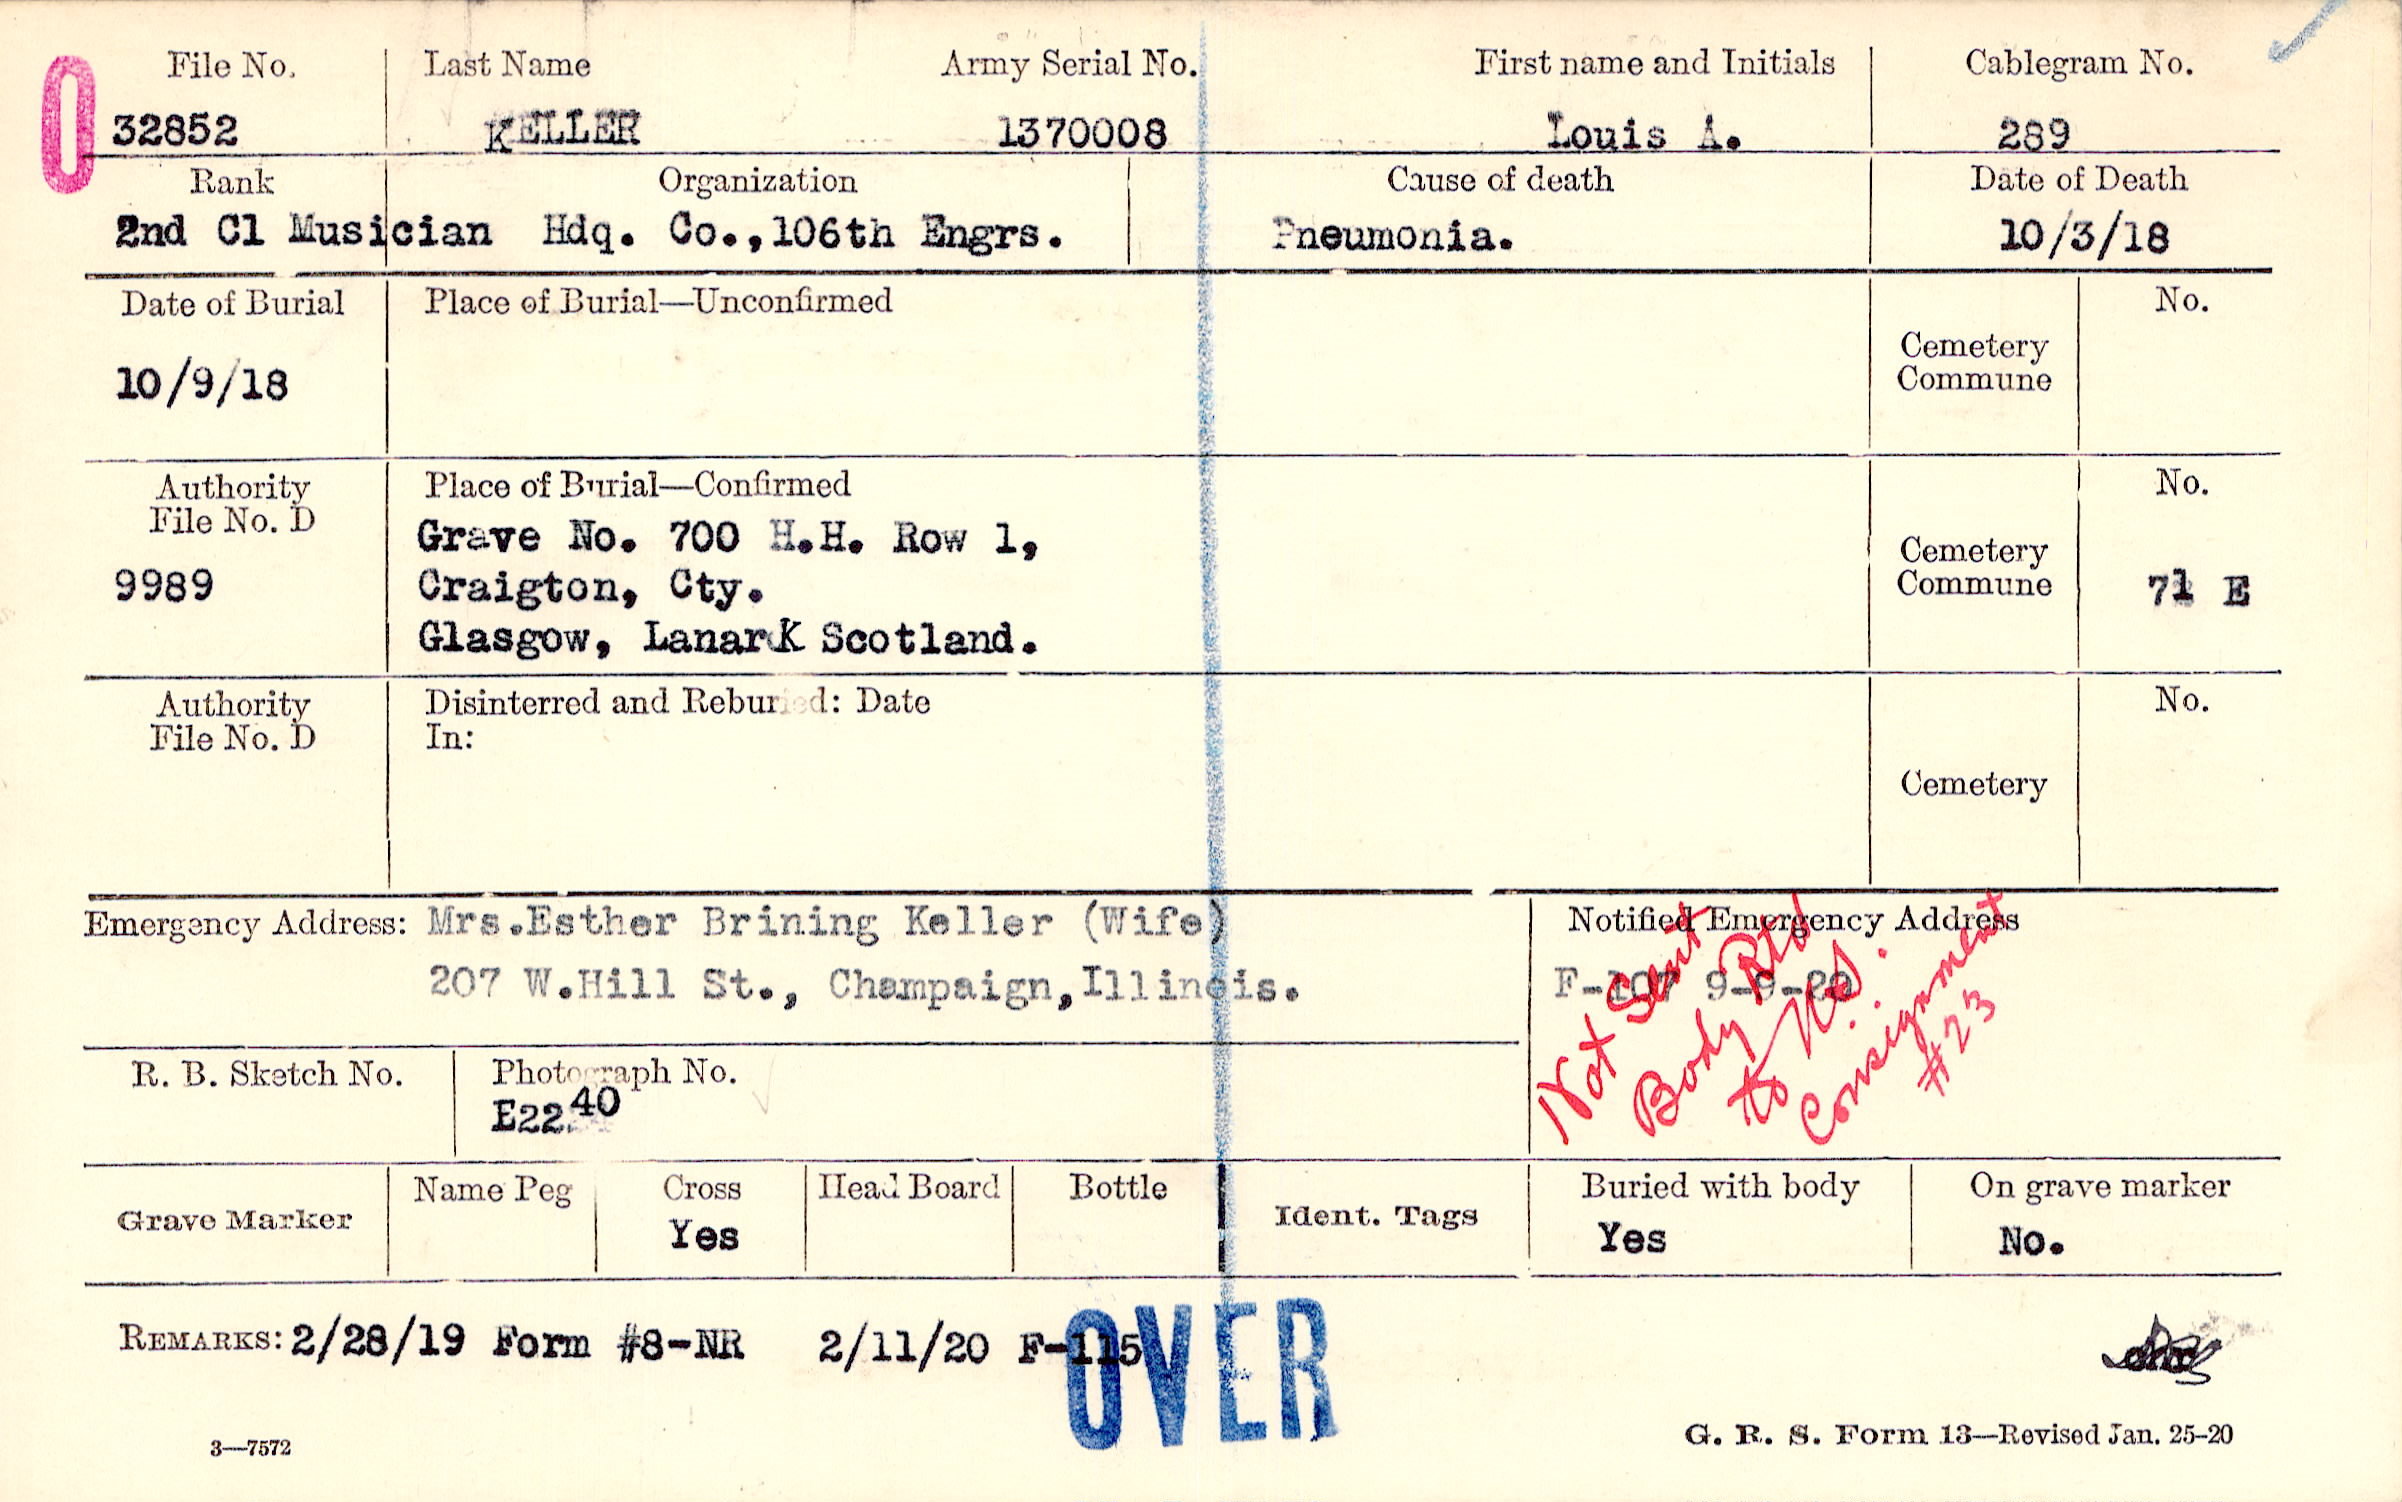 O
File No. Last Name Army Serial No. First name and Initials Cablegram No.
32852 KELLER 1370008 Louis A. 289
Rank Organization Cause of death Date of Death
2nd Cl Musician Hdq. Co.,106th Engrs. Pneumonia. 10/3/18
Date of Burial Place of Burial—Unconfirmed No.
Cemetery
Commune
10/9/18
Authority Place of Burial—Confirmed No.
File No. D
Grave No. 700 H.H. Row 1,
Cemetery
9989 Craigton, Cty. Commune 71 E
Glasgow, LanarK Scotland.
Authority Disinterred and Reburied: Date No.
File No. D In:
Cemetery
Emergency Address: Mrs.Esther Brining Keller (Wife) Notified Emergency Address
207 W.Hill St., Champaign,Illinois. F-107 9-9-20
Not Sent
Body Rtd
to U.S.
Consignment
#23
R. B. Sketch No. Photograph No.
E2240
Grave Marker Name Peg Cross Head Board Bottle Ident. Tags Buried with body On grave marker
Yes Yes No.
REMARKS: 2/28/19 Form #8-NR 2/11/20 F-115
OVER
3—7572 G. R. S. Form 13—Revised Jan. 25-20